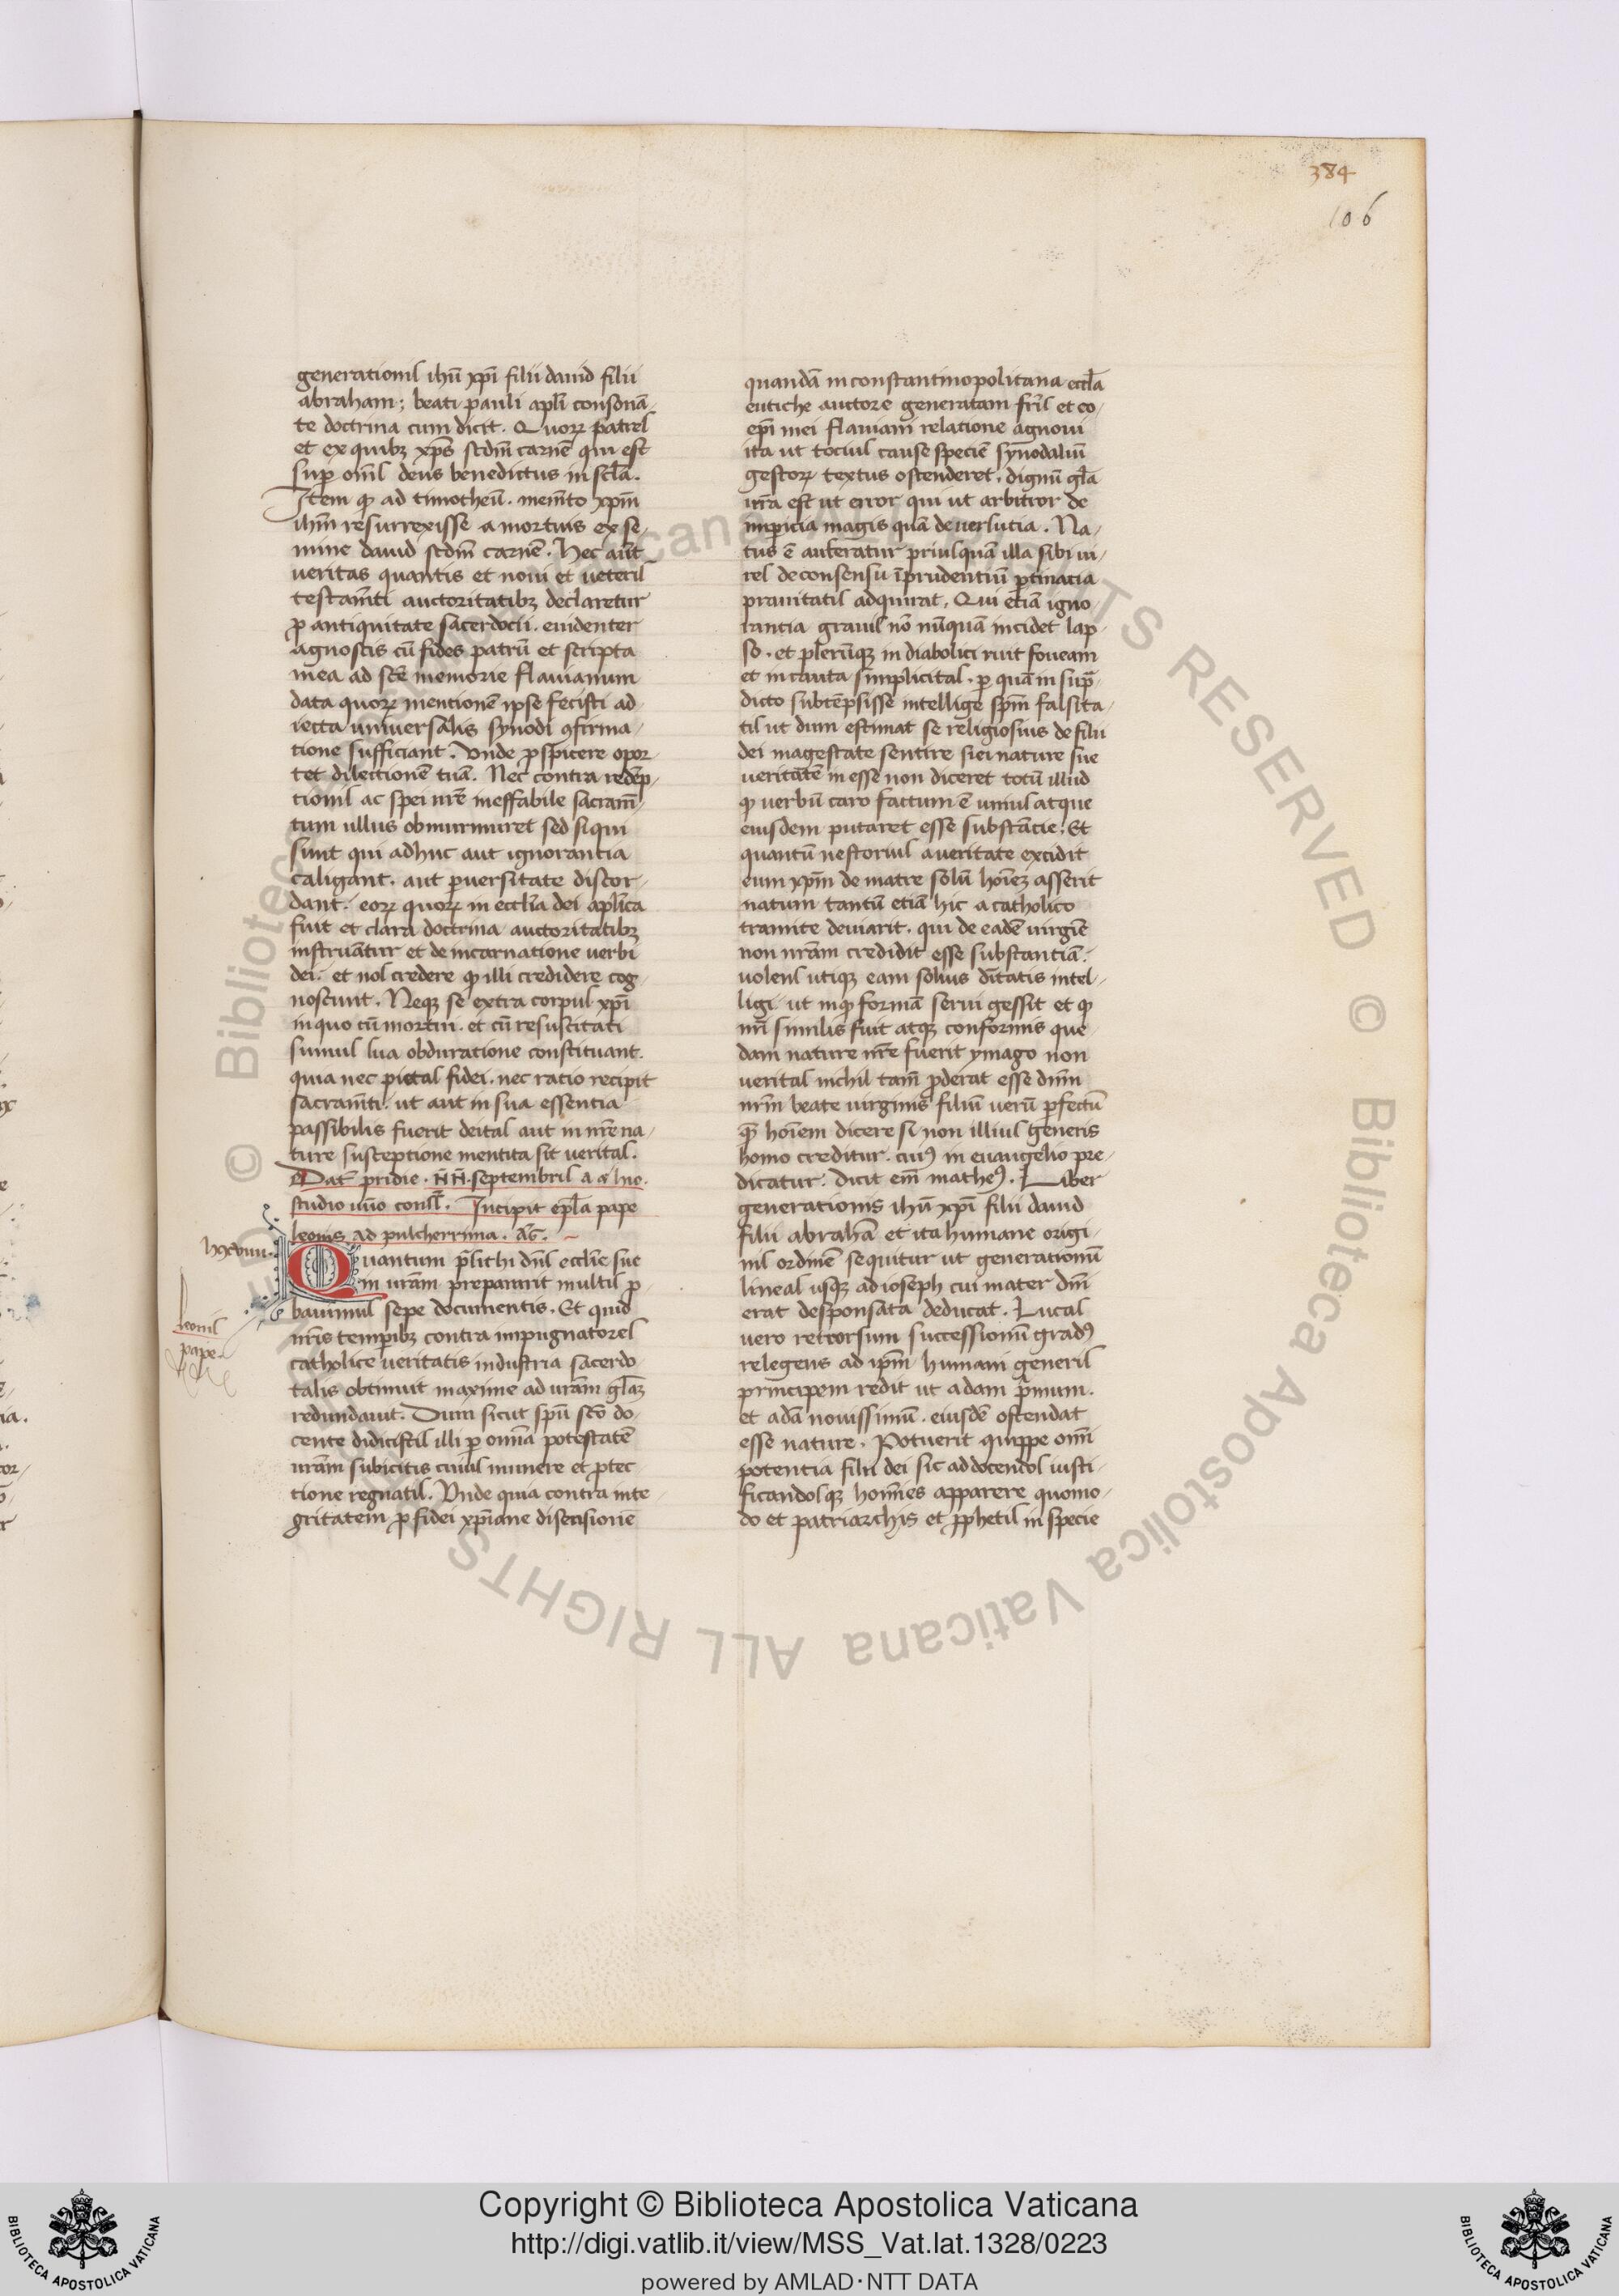 384
106
generationis ihū xpī filii dauid filii
abraham; beati pauli apłi consonā-
te doctrina cum dicit. Quoꝝ patres
et ex quibꝫ xp̄s scd̄m carnē qui est
sup̄ om̄s deus benedictus in scła.
Item ꝙ ad timotheū. mem̄to xpm̄
ihm̄ resurrexisse a mortuis ex se-
mine dauid scd̄m carnē. Hec aūt
ueritas quantis et noui et ueteris
testam̄ti auctoritatibꝫ declaretur
ꝓ antiquitate sacerdocii. euidenter
agnoscis cū fides patrū et scripta
mea ad scē memorie flauianum
data quoꝝ mentionē ipse fecisti ad
recta uniuersalis synodi ꝯfirma-
tione sufficiant. Vnde ꝓspicere opor-
tet dilectionē tuā. Nec contra redēp-
tionis ac spei nr̄e ineffabile sacram̄-
tum ullus obmurmuret sed si qui
sunt qui adhuc aut ignorantia
caligant. aut ꝑuersitate discor-
dant. eoꝝ quoꝝ in eccłia dei apłica
fuit et clara doctrina auctoritatibꝫ
instruātur et de incarnatione uerbi
dei. et nos credere ꝙ illi credidere cog-
noscunt. Neqꝫ se extra corpus xpī
in quo cū mortui. et cū resuscitati
sumus sua obduratione constituant.
quia nec pietas fidei. nec ratio recipit
sacram̄ti. ut aut in sua essentia
passibilis fuerit deitas aut in nr̄e na-
ture susceptione mentita sit ueritas.
Dat̄ pridie. N̄N̄. septembris a a he.
studio uīo consł. Incipit epłа pape
leonis ad pulcherrima. aḡ.
leonis
pape
Quantum p̄sichi dn̄s eccłie sue
in ur̄am preparurit multis ꝓ-
bauimus sepe documentis. Et quid
nr̄is temꝑibꝫ contra impugnatores
catholice ueritatis industria sacerdo-
talis obtinuit maxime ad ur̄am głaꝫ
redundauit. Dum sicut spū scō do-
cente didicistis illi ꝑ omīa potestatē
ur̄am subicitis cuius munere et ꝓtec-
tione regnatis. Vnde quia contra inte-
gritatem ꝓ fidei xpīane discisionē
quandā in constantinopolitana eccła
eutiche auctore generatam fr̄is et co-
epī mei flauiani relatione agnoui
ita ut tocius cause speciē synodaliū
gestoꝝ textus ostenderet. dignū głа
ur̄a est ut error qui ut arbitror de
imꝑicia magis quā de uersutia. Na-
tus ē auferatur priusquā illa sibi ui-
res de consensu īprudentiū ꝑtinatia
prauitatis adquirat. Qui etiā igno-
rantia grauis nō nūquā incidet lap-
so. et plerūqꝫ in diabolici ruit foueam
et in cauta simplicitas. ꝑ quā in sup̄-
dicto subrēpsisse intellige spm̄ falsita-
tis ut dum estimat se religiosius de filii
dei magestate sentire si ei nature sue
ueritatē in esse non diceret totū illud
ꝙ uerbū caro factum ē unius atque
eiusdem putaret esse substācie. Et
quantū nestorius a ueritate excidit
eum xpm̄ de matre solū hoīeꝫ asserit
natum tantū etiā hic a catholico
tramite deuiarit. qui de eadē uirgīē
non nr̄am credidit esse substantiā.
uolens utiqꝫ eam solius dītatis intel-
ligi. ut inꝙ formā serui gessit et ꝙ
nr̄i similis fuit atqꝫ conformis que-
dam nature nr̄e fuerit ymago non
ueritas nichil tam̄ ꝓderat esse dnm̄
nr̄m beate uirginis filiū uerū ꝑfectū
qꝫ hoīem dicere si non illius generis
homo creditur. cuiꝰ in euangelio pre-
dicatur. dicit em̄ matheꝰ. Liber
generationis ihū xpī filii dauid
filii abrahā et ita humane origi-
nis ordinē sequitur ut generationū
lineas usqꝫ ad ioseph cui mater dn̄i
erat desponsata deducat. Lucas
uero retrorsum successionū gradꝰ
relegens ad ip̄m humani generis
principem redit ut adam p̄mum.
et adā nouissimū. eiusdē ostendat
esse nature. Potuerit quippe om̄i
potentia filii dei sic ad docendos iusti-
ficandosqꝫ homīes apparere quomo-
do et patriarchis et ꝓphetis in specie
© Biblioteca Apostolica Vaticana ALL RIGHTS RESERVED
Copyright © Biblioteca Apostolica Vaticana
http://digi.vatlib.it/view/MSS_Vat.lat.1328/0223
powered by AMLAD·NTT DATA
BIBLIOTECA APOSTOLICA VATICANA
BIBLIOTECA APOSTOLICA VATICANA